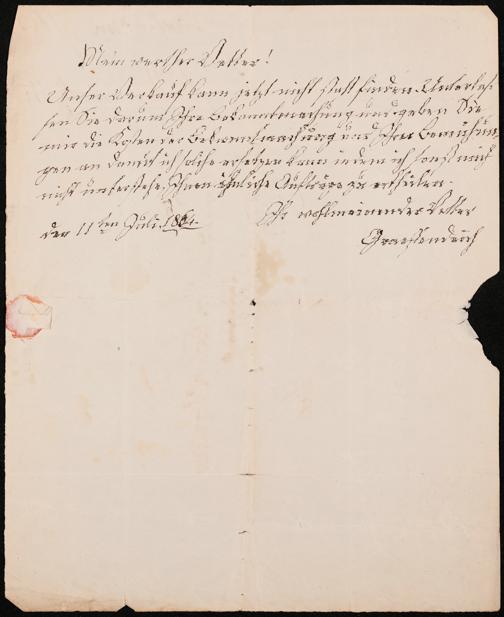 Mein werther Vetter!
Unser Verkauf kann jetzt nicht statt finden. Unterlas-
sen Sie darum Ihre Bekanntmachung und geben Sie
mir die Kosten der Bekanntmachung und Ihrer Bemühun-
gen an damit ich solche ersetzen kann indem ich sonst mich
nicht unterstehe, Ihnen ähnliche Aufträge zu ertheilen.
den 11ten Juli
Ihr wohlmeinender Vetter